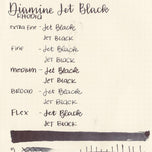 Diamine Jet Black
RHODIA
EXTRA FINE - Jet Black
JET BLACK
FINE - Jet Black
JET BLACK
MEDIUM - Jet Black
JET BLACK
BROAD - Jet Black
JET BLACK
FLEX - Jet Black
JET BLACK